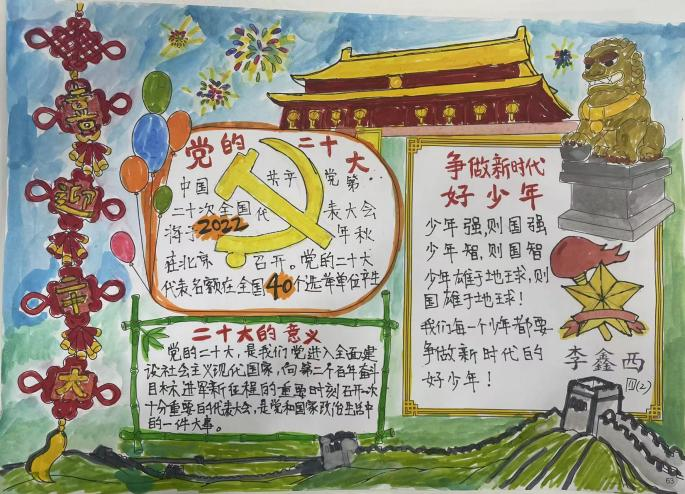 喜
迎
二
十
大
党的二十大
中国共产党第
二十次全国代表大会
将于2022年秋
在北京召开。党的二十大
代表名额在全国40个选举单位产生
二十大的意义
党的二十大，是我们党进入全面建
设社会主义现代国家，向第二个百年奋斗
目标进军新征程的重要时刻召开一次
十分重要的代表大会，是党和国家政治生活中
的一件大事。
争做新时代
好少年
少年强，则国强
少年智，则国智
少年雄于地球，则
国雄于地球！
我们每一个少年都要
争做新时代的
好少年！
李鑫西
四（2）
63